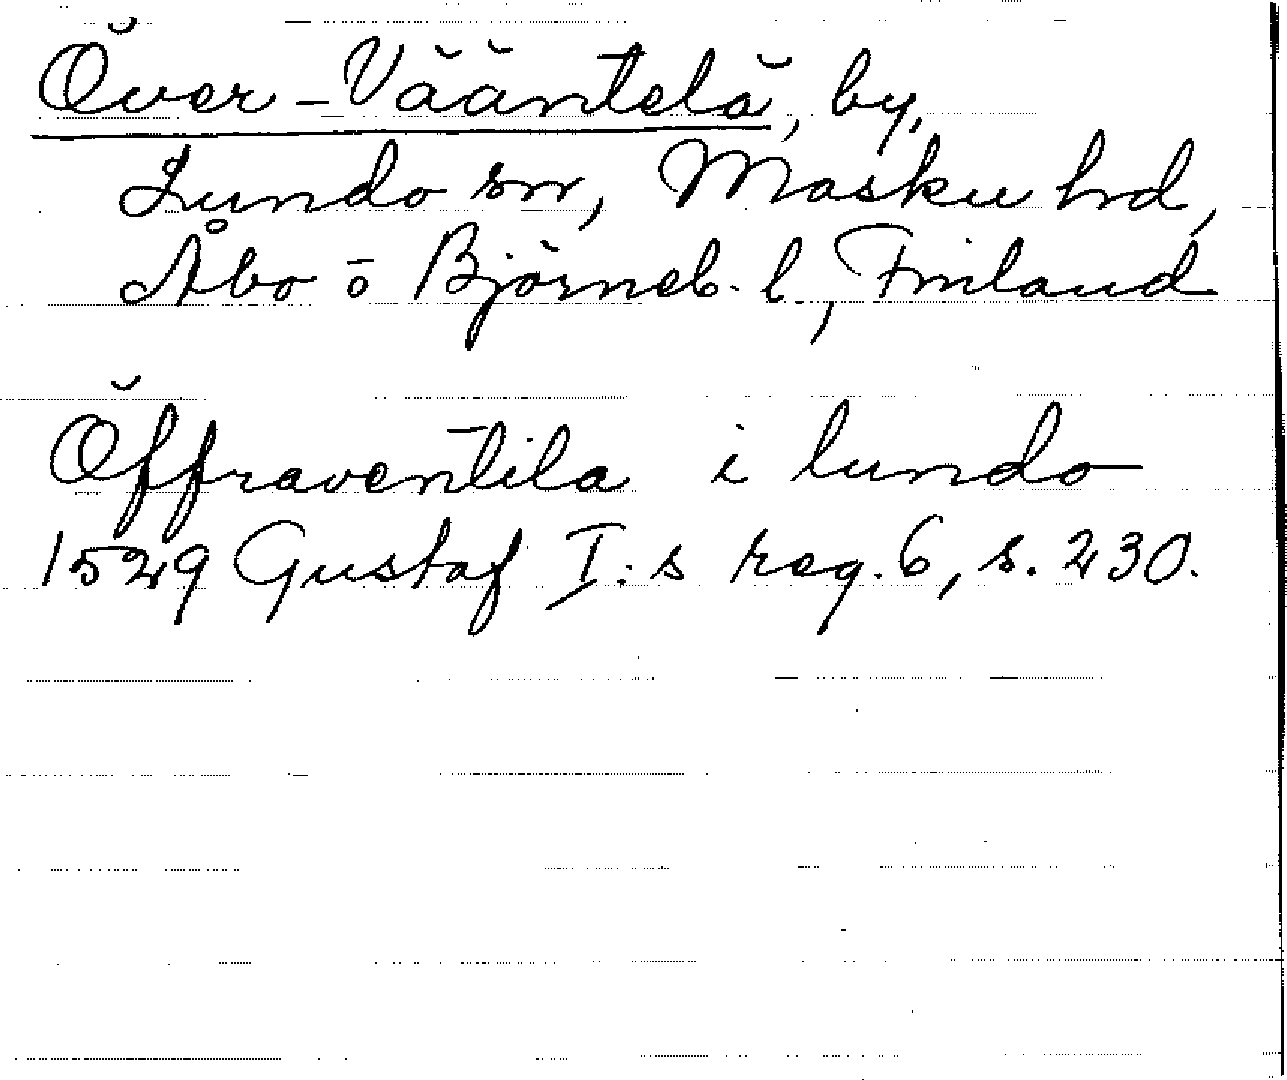 Över-Vääntelä, by,
Lundo sn, Masku hd,
Åbo ō Björneb. l, Finland
Öffraventila i lundo
1529 Gustaf I:s reg. 6, s. 230.